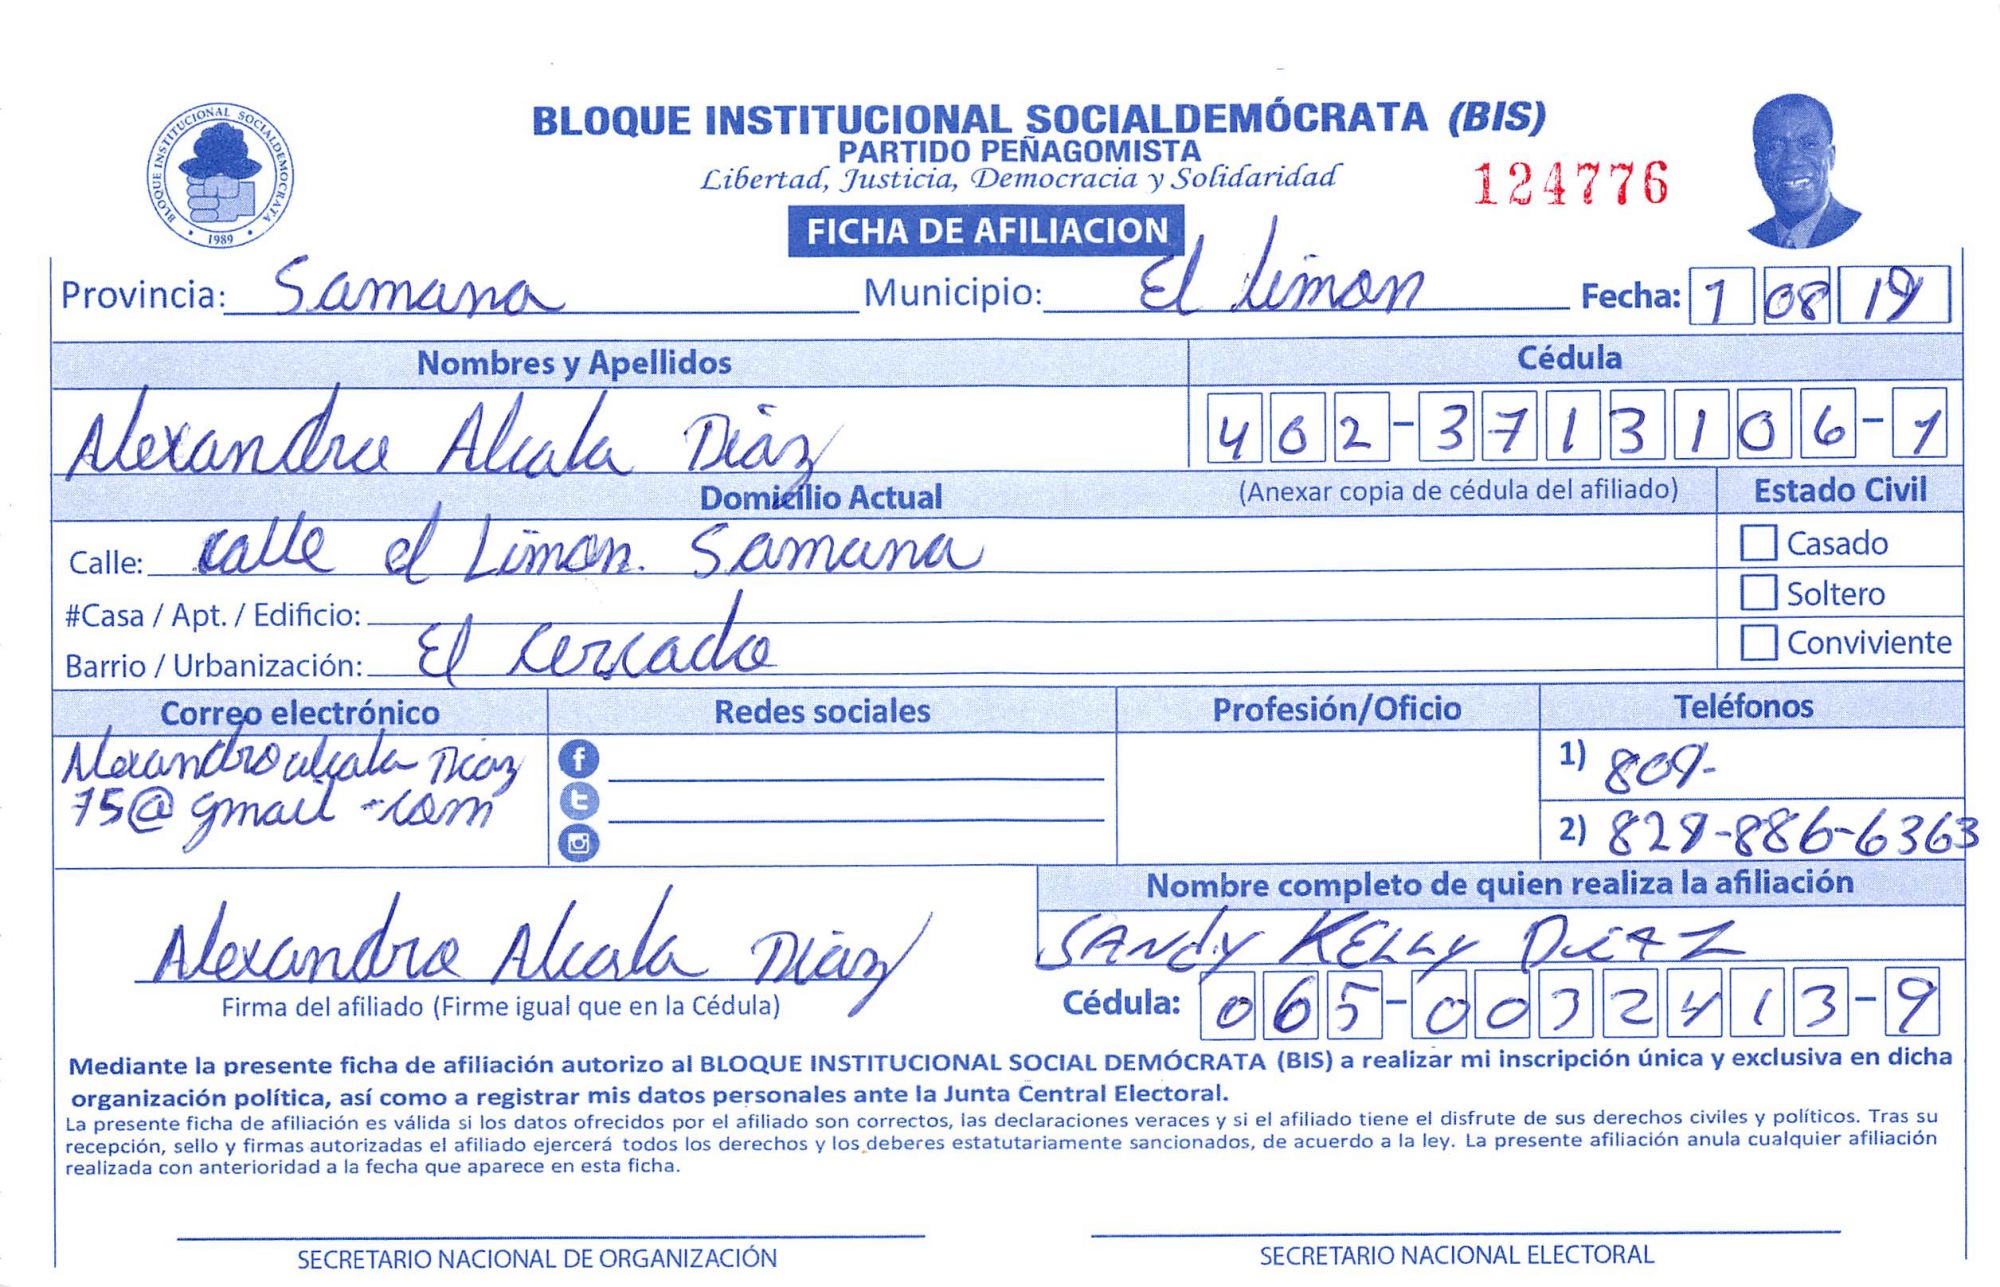 BLOQUE INSTITUCIONAL SOCIALDEMOCRATA
1989
BLOQUE INSTITUCIONAL SOCIALDEMÓCRATA (BIS)
PARTIDO PEÑAGOMISTA
Libertad, Justicia, Democracia y Solidaridad
124776
FICHA DE AFILIACION
Provincia: Samana Municipio: El Limon Fecha: 1 08 19
Nombres y Apellidos Cédula
Alexandra Alcala Diaz 402-3713106-1
Domicilio Actual (Anexar copia de cédula del afiliado) Estado Civil
Calle: calle el Limon. Samana Casado
#Casa / Apt. / Edificio: Soltero
Barrio / Urbanización: El Cercado Conviviente
Correo electrónico Redes sociales Profesión/Oficio Teléfonos
Alexandro alcala Diaz 1) 809-
75@gmail-com 2) 829-886-6363
Nombre completo de quien realiza la afiliación
Alexandra Alcala Diaz SANdy KELLY DiAZ
Firma del afiliado (Firme igual que en la Cédula) Cédula: 065-0032413-9
Mediante la presente ficha de afiliación autorizo al BLOQUE INSTITUCIONAL SOCIAL DEMÓCRATA (BIS) a realizar mi inscripción única y exclusiva en dicha
organización política, así como a registrar mis datos personales ante la Junta Central Electoral.
La presente ficha de afiliación es válida si los datos ofrecidos por el afiliado son correctos, las declaraciones veraces y si el afiliado tiene el disfrute de sus derechos civiles y políticos. Tras su
recepción, sello y firmas autorizadas el afiliado ejercerá todos los derechos y los deberes estatutariamente sancionados, de acuerdo a la ley. La presente afiliación anula cualquier afiliación
realizada con anterioridad a la fecha que aparece en esta ficha.
SECRETARIO NACIONAL DE ORGANIZACIÓN SECRETARIO NACIONAL ELECTORAL